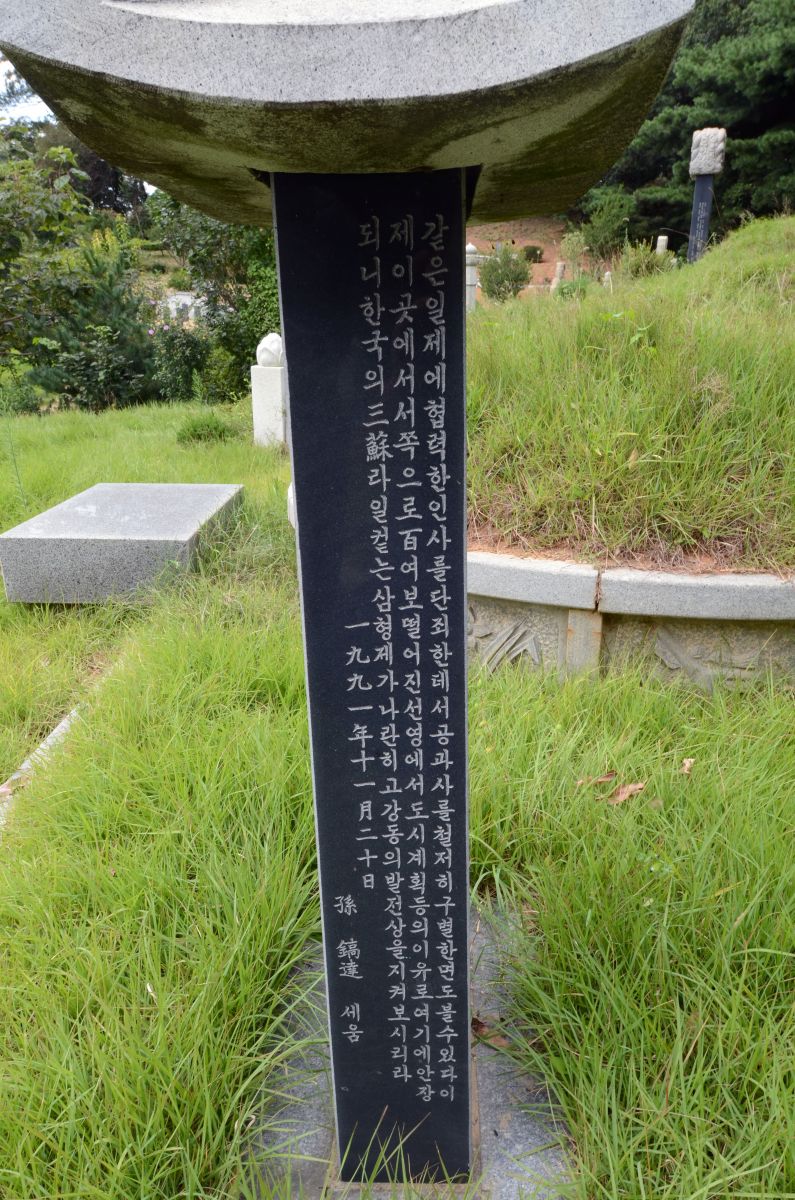 같은일제에협력한인사를단죄한데서공과사를철저히구별한면도볼수있다이
제이곳에서서쪽으로百여보떨어진선영에서도시계획등의이유로여기에안장
되니한국의三蘇라일컽는삼형제가나란히고강동의발전상을지켜보시리라
一九九一年十一月二十日
孫 鎬達 세움